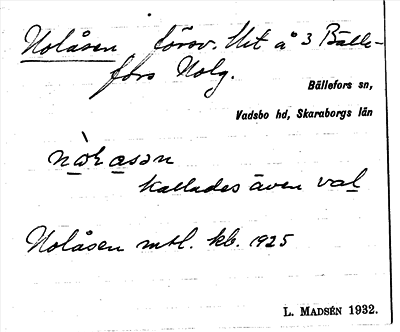 Nolåsen försv. Utt å 3 Bälle-
fors Nolg.
Bällefors sn,
Vadsbo hd, Skaraborgs län
kallades även val
Nolåsen mtl. kb. 1925
L. MADSÉN 1932.